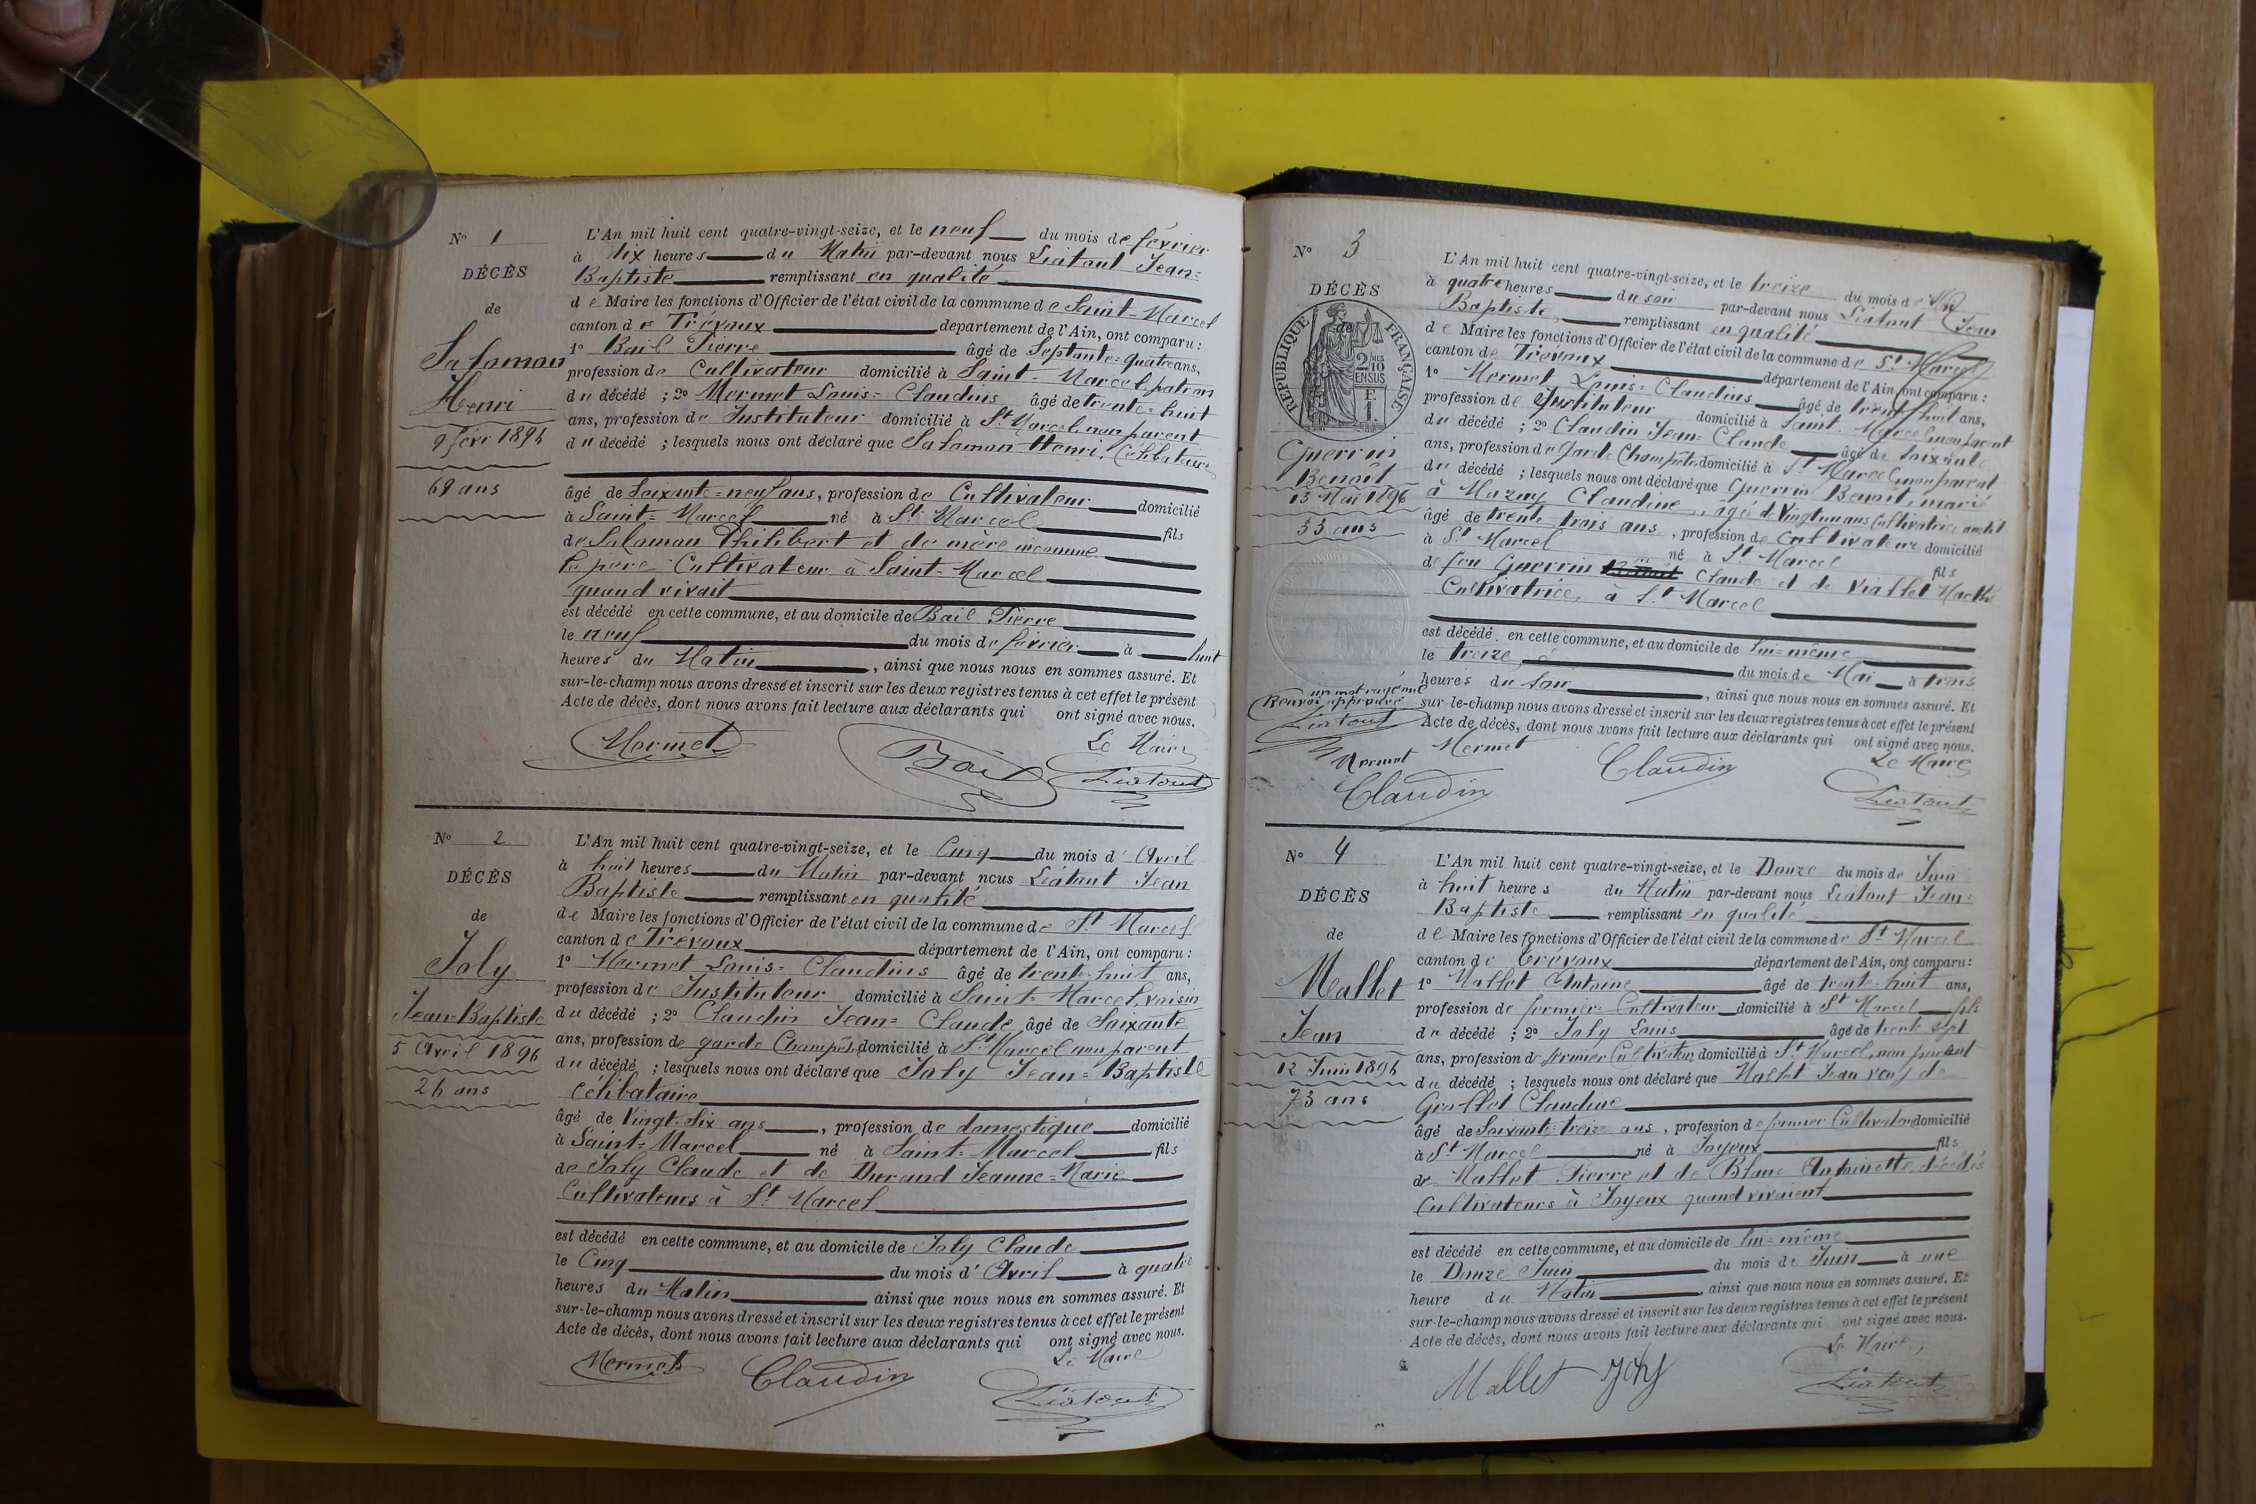 N° 1
DÉCÈS
de
Salomon
Henri
9 févr 1896
69 ans
L'An mil huit cent quatre-vingt-seize, et le neuf du mois de février
à dix heures du Matin par-devant nous Liatout Jean=
Baptiste remplissant en qualité
de Maire les fonctions d'Officier de l'état civil de la commune de Saint-Marcel
canton de Trévoux département de l'Ain, ont comparu :
1° Bail Pierre âgé de Septante-quatre ans,
profession de Cultivateur domicilié à Saint-Marcel, patron
du décédé ; 2° Mermet Louis=Claudius âgé de trente=huit
ans, profession de Instituteur domicilié à St Marcel, non parent
du décédé ; lesquels nous ont déclaré que Salomon Henri, Célibataire
âgé de Soixante=neuf ans, profession de Cultivateur domicilié
à Saint=Marcel né à St Marcel fils
de Salomon Philibert et de mère inconnue
Le père Cultivateur à Saint-Marcel
quand vivait
est décédé en cette commune, et au domicile de Bail Pierre
le neuf du mois de février à huit
heures du Matin, ainsi que nous nous en sommes assuré. Et
sur-le-champ nous avons dressé et inscrit sur les deux registres tenus à cet effet le présent
Acte de décès, dont nous avons fait lecture aux déclarants qui ont signé avec nous.
Le Maire
Mermet Bail Liatout
N° 2
DÉCÈS
de
Joly
Jean-Baptiste
5 Avril 1896
26 ans
L'An mil huit cent quatre-vingt-seize, et le Cinq du mois d'Avril
à huit heures du Matin par-devant nous Liatout Jean
Baptiste remplissant en qualité
de Maire les fonctions d'Officier de l'état civil de la commune de St Marcel
canton de Trévoux département de l'Ain, ont comparu :
1° Mermet Louis=Claudius âgé de trente-huit ans,
profession de Instituteur domicilié à Saint-Marcel, voisin
du décédé ; 2° Claudin Jean=Claude âgé de Soixante
ans, profession de garde Champêtre domicilié à St Marcel non parent
du décédé ; lesquels nous ont déclaré que Joly Jean=Baptiste
Célibataire
âgé de Vingt-Six ans, profession de domestique domicilié
à Saint=Marcel né à Saint=Marcel fils
de Joly Claude et de Durand Jeanne=Marie
Cultivateurs à St Marcel
est décédé en cette commune, et au domicile de Joly Claude
le Cinq du mois d'Avril à quatre
heures du Matin ainsi que nous nous en sommes assuré. Et
sur-le-champ nous avons dressé et inscrit sur les deux registres tenus à cet effet le présent
Acte de décès, dont nous avons fait lecture aux déclarants qui ont signé avec nous.
Le Maire
Mermet Claudin Liatout
N° 3
DÉCÈS
de
RÉPUBLIQUE FRANÇAISE
2/10 EN SUS
F. 1.
Guerrin
Benoît
13 Mai 1896
33 ans
L'An mil huit cent quatre-vingt-seize, et le treize du mois de Mai
à quatre heures du soir par-devant nous Liatout Jean
Baptiste remplissant en qualité
de Maire les fonctions d'Officier de l'état civil de la commune de St Marcel
canton de Trévoux département de l'Ain, ont comparu :
1° Mermet Louis=Claudius âgé de trente huit ans,
profession de Instituteur domicilié à Saint-Marcel, non parent
du décédé ; 2° Claudin Jean=Claude âgé de Soixante
ans, profession de Garde Champêtre domicilié à St Marcel, non parent
du décédé ; lesquels nous ont déclaré que Guerrin Benoit, marié
à Claudine, âgée de Vingt un ans Cultivatrice
âgé de trente trois ans, profession de Cultivateur domicilié
à St Marcel né à St Marcel fils
de feu Guerrin Claude et de Viallet
Cultivatrice, à St Marcel
est décédé en cette commune, et au domicile de lui=même
le treize du mois de Mai à trois
heures du Soir, ainsi que nous nous en sommes assuré. Et
sur-le-champ nous avons dressé et inscrit sur les deux registres tenus à cet effet le présent
Acte de décès, dont nous avons fait lecture aux déclarants qui ont signé avec nous.
un mot rayé nul
Renvoi approuvé
Liatout
Mermet
Claudin
Le Maire
Mermet Claudin Liatout
N° 4
DÉCÈS
de
Mallet
Jean
12 Juin 1896
73 ans
L'An mil huit cent quatre-vingt-seize, et le Douze du mois de Juin
à huit heures du Matin par-devant nous Liatout Jean=
Baptiste remplissant en qualité
de Maire les fonctions d'Officier de l'état civil de la commune de St Marcel
canton de Trévoux département de l'Ain, ont comparu :
1° Mallet Antoine âgé de trente-huit ans,
profession de fermier Cultivateur domicilié à St Marcel fils
du décédé ; 2° Joly Louis âgé de trente sept
ans, profession de fermier Cultivateur domicilié à St Marcel, non parent
du décédé ; lesquels nous ont déclaré que Mallet Jean veuf de
Claudine
âgé de Soixante-treize ans, profession de fermier Cultivateur domicilié
à St Marcel né à Joyeux fils
de Mallet Pierre et de Blanc Antoinette, décédés
Cultivateurs à Joyeux quand vivaient
est décédé en cette commune, et au domicile de lui=même
le Douze Juin du mois de Juin à une
heure du Matin, ainsi que nous nous en sommes assuré. Et
sur-le-champ nous avons dressé et inscrit sur les deux registres tenus à cet effet le présent
Acte de décès, dont nous avons fait lecture aux déclarants qui ont signé avec nous.
Le Maire,
Mallet Joly Liatout